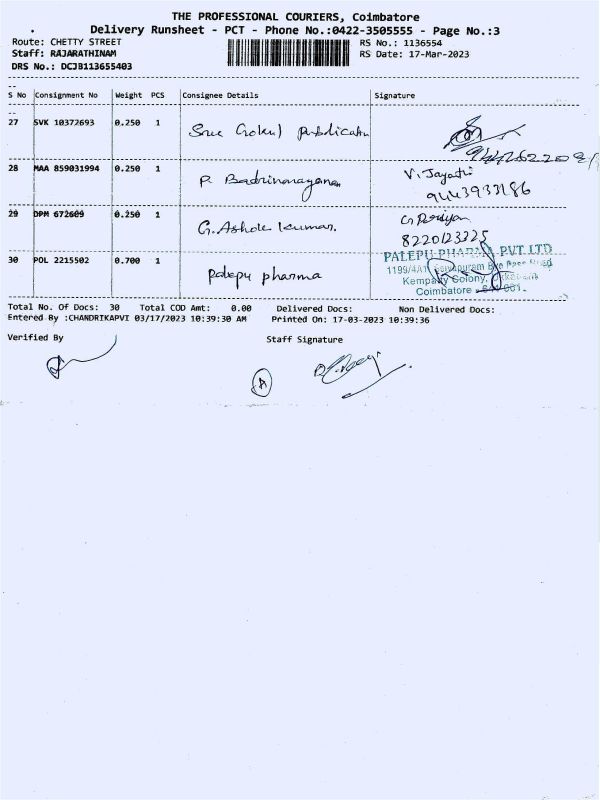 THE PROFESSIONAL COURIERS, Coimbatore
Delivery Runsheet - PCT - Phone No.:0422-3505555 - Page No.:3
Route: CHETTY STREET RS No.: 1136554
Staff: RAJARATHINAM RS Date: 17-Mar-2023
DRS No.: DCJB113655403
S No Consignment No Weight PCS Consignee Details Signature
27 SVK 10372693 0.250 1 Sree Gokul Publication
28 MAA 859031994 0.250 1 P. Badrinarayanan V. Jayanthi
9443933186
29 DPM 672609 0.250 1 G. Ashok kumar.
8220123325
30 POL 2215502 0.700 1 Palepu pharma PALEPU PHARMA PVT LTD
Kempatty Colony,
Coimbatore - 641 001.
Total No. Of Docs: 30 Total COD Amt: 0.00 Delivered Docs: Non Delivered Docs:
Entered By :CHANDRIKAPVI 03/17/2023 10:39:30 AM Printed On: 17-03-2023 10:39:36
Verified By Staff Signature